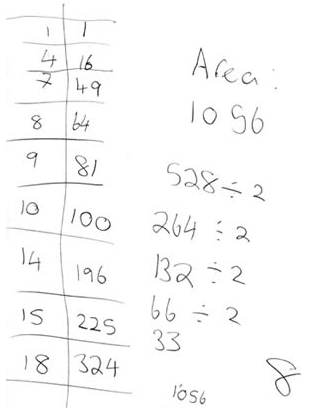 1 1
4 16
7 49
8 64
9 81
10 100
14 196
15 225
18 324
Area:
1056
528 ÷ 2
264 ÷ 2
132 ÷ 2
66 ÷ 2
33
1056
8